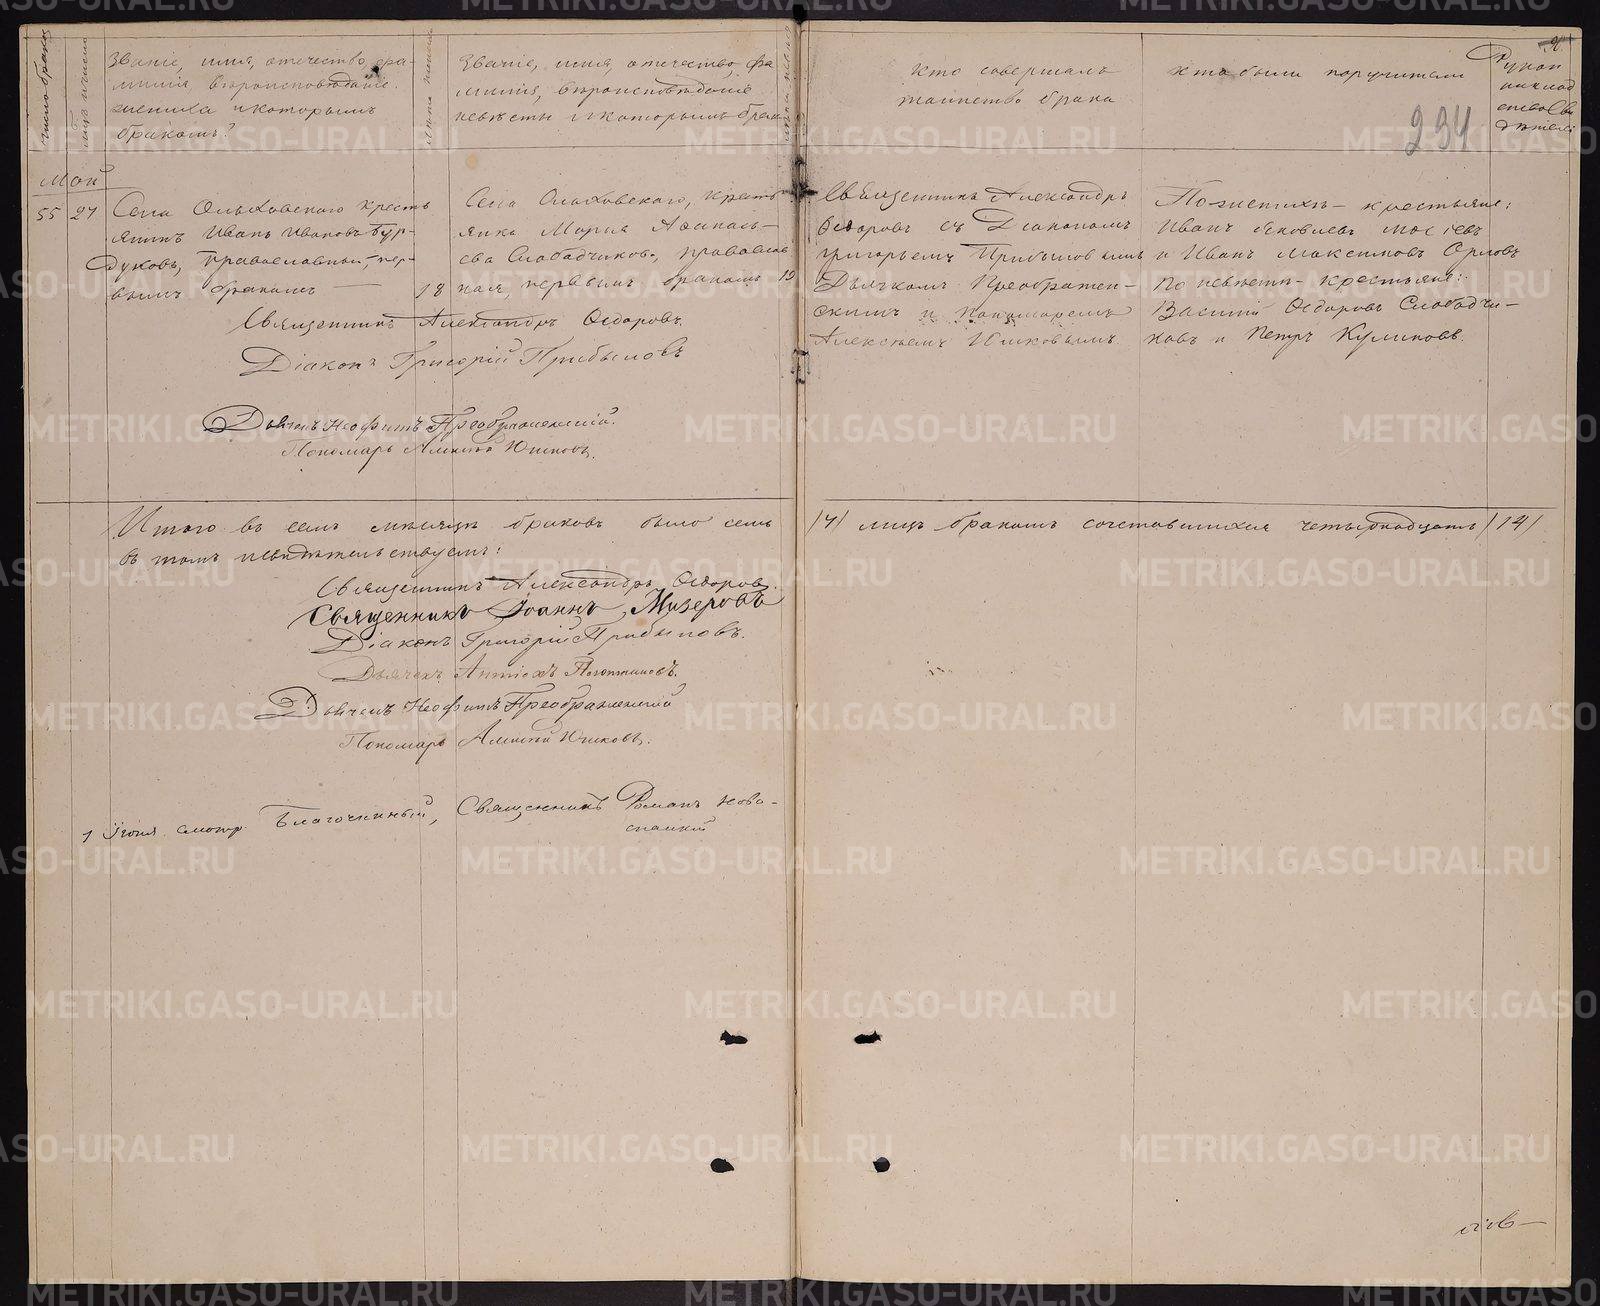 число браков
лѣта жениха
Званіе, имя, отечество, фа-
милія, вѣроисповѣданіе
жениха и которымъ
бракомъ?
Званіе, имя, отечество, фа
милія, вѣроисповѣданіе
невѣсты и которымъ брак
Кто совершалъ
таинство брака
Кто были поручители
Рукоп
приклад
ство Сви
дѣтелей
234
Май
55 27 Села Ольховскаго кресть
янинъ Иванъ Ивановъ Бур-
дуковъ, православный, пер-
вымъ бракомъ — 18
Села Ольховскаго, кресть
янка Марія Аѳанась-
ева Слободчикова, православ
ная, первымъ бракомъ 19
Священникъ Александръ
Ѳедоровъ съ Діакономъ
Григорьемъ Прибыловымъ
Дьячкомъ Преображен-
скимъ и пономаремъ
Алексѣемъ Юшковымъ.
По женихѣ — крестьяне:
Иванъ Яковлевъ
и Иванъ Максимовъ Орловъ
по невѣстѣ — крестьяне:
Василій Ѳедоровъ Слободчи-
ковъ и Петръ Куликовъ.
Священникъ Александръ Ѳедоровъ.
Діаконъ Григорій Прибыловъ
Дьячекъ Неофитъ Преображенскій.
Пономарь Алексѣй Юшковъ.
Итого въ семъ мѣсяцѣ браковъ было семь /7/ лицъ бракомъ сочетавшихся четырнадцать /14/
въ томъ и свидѣтельствуемъ:
Священникъ Александръ Ѳедоровъ.
Священникъ Іоаннъ Мизеровъ
Діаконъ Григорій Прибыловъ.
Дьячекъ Антіохъ Плотниковъ.
Дьячекъ Неофитъ Преображенскій
Пономарь Алексѣй Юшковъ.
7 Іюня смотр. Благочинный, Священникъ Романъ Ново-
спасскій
METRIKI.GASO-URAL.RU